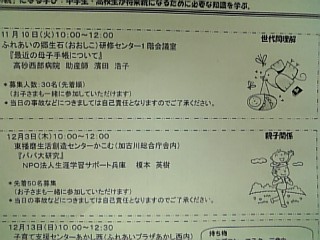 中学生・高校生が将来親になるために必要な知識を学ぶ。
11月10日(火)10:00～12:00
世代間理解
ふれあいの郷生石(おおしこ)研修センター1階会議室
『最近の母子手帳について』
高砂西部病院 助産師 濱田 浩子
*募集人数:30名(先着順)
(お子さまも一緒に参加していただけます)
*当日の事故などにつきましては自己責任となりますのでご了承ください。
12月3日(木)10:00～12:00
親子関係
東播磨生活創造センターかこむ(加古川総合庁舎内)
『パパ大研究』
NPO法人生涯学習サポート兵庫 榎本 英樹
*先着50名募集
(お子さまも一緒に参加していただけます)
*当日の事故などにつきましては自己責任となりますのでご了承ください。
12月13日(日)10:00～12:30
持ち物
子育て支援センターあかし西(ふれあいプラザあかし西内)